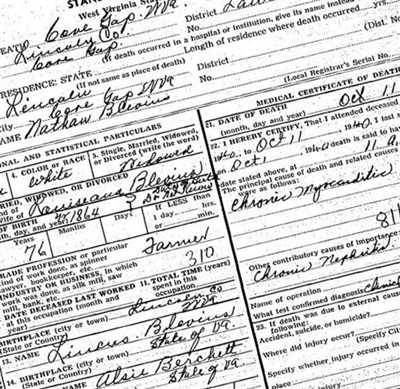 STAN
West Virginia State
Cove Gap, W.Va
District
Lincoln Co.
Cove Gap.
(If death occurred in a hospital or institution, give its name instead
Length of residence where death occurred yrs.
RESIDENCE: STATE W Va
(If not same as place of death)
District
Lincoln
Cove Gap W Va
No.
Nathan Blevins
(Local Registrar's Serial No.
ONAL AND STATISTICAL PARTICULARS
4. COLOR or RACE
5. Single, Married, Widowed, or Divorced (write the word)
White
Widowed
RIED, WIDOWED, or DIVORCED
Louiseans Blevins
OF BIRTH
day, and year)
1864
Years
Months
Days
If LESS than
hrs.
min.
76
RADE PROFESSION or particular
ind of work done, as spinner
awyer, bookkeeper, etc.
Farmer
INDUSTRY OR BUSINESS, in which
work was done, as silk mill, saw
310
DATE DECEASED LAST WORKED
this occupation (month and
11. TOTAL TIME (years)
spent in this
occupation
BIRTHPLACE (city or town)
(State or Country)
Lincoln Co
W Va
13. NAME
Lineus Blevins
14. BIRTHPLACE (city or town)
(State or Country)
State of Va.
NAME
Alsie Berchett
State of Va
MEDICAL CERTIFICATE OF DEATH
21. DATE OF DEATH
(month, day, and year)
Oct 11
22. I HEREBY CERTIFY, That I attended deceased
to Oct 11
Oct 1
death is said to hav
date stated above, at
11 a
The principal cause of death and related causes
were as follows:
Chronic Myocarditis
811
Other contributory causes of importance
Chronic Nephritis
Name of operation
What test confirmed diagnosis
23. If death was due to external cause
following:
Accident, suicide, or homicide?
Where did injury occur?
(Specify Cit
Specify whether injury occurred in
place.